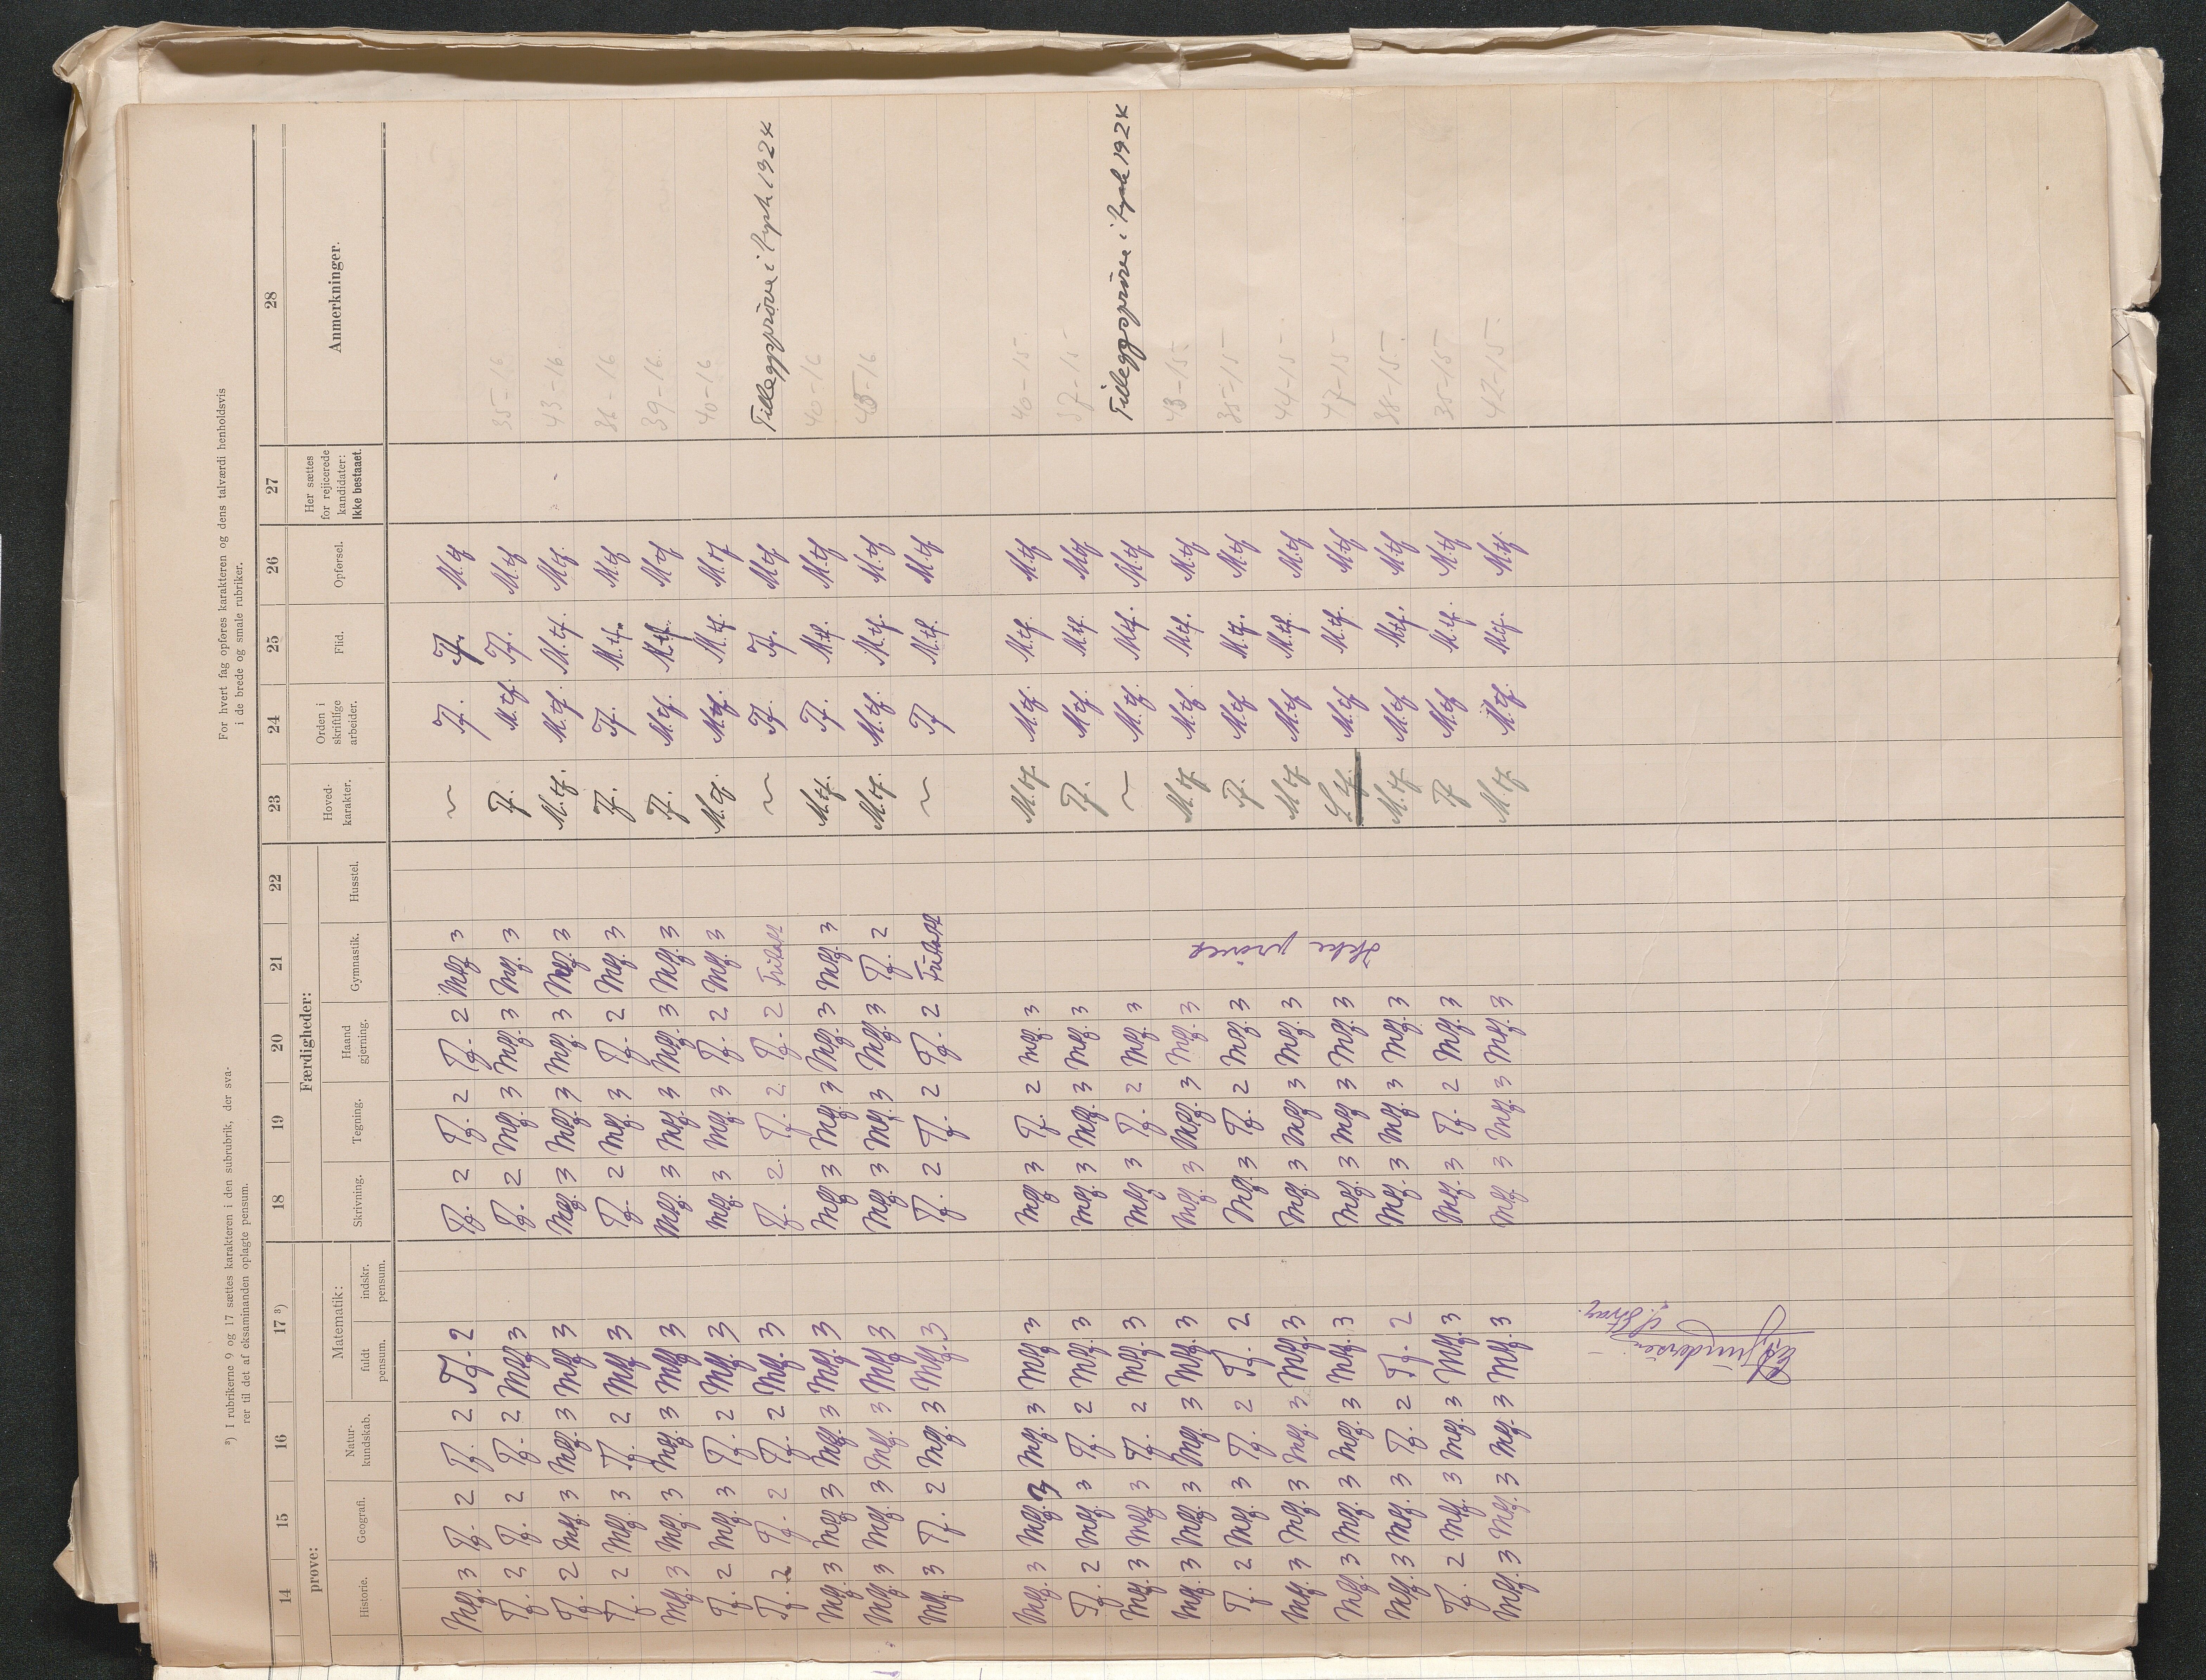 ³) I rubrikerne 9 og 17 sættes karakteren i den subrubrik, der sva-
rer til det af eksaminanden oplagte pensum.
For hvert fag opføres karakteren og dens talværdi henholdsvis
i de brede og smale rubriker.
14 15 16 17 ³) 18 19 20 21 22 23 24 25 26 27 28
prøve: Færdigheder:
Historie. Geografi. Natur-kundskab. Matematik: fuldt pensum. indskr. pensum. Skrivning. Tegning. Haand gjerning. Gymnastik. Husstel. Hoved-karakter. Orden i skriftlige arbeider. Flid. Opførsel. Her sættes for rejicerede kandidater: Ikke bestaaet. Anmerkninger.
Meg. 3 Tg. 2 Tg. 2 Tg. 2 Tg. 2 Tg. 2 Tg. 2 Meg. 3 ~ Tf. Tf. M.tf
Tg. 2 Tg. 2 Tg. 2 Meg. 3 Tg. 2 Meg. 3 Meg. 3 Meg. 3 Tf. M.tf. Tf. M.tf 35-16
Tg. 2 Meg. 3 Meg. 3 Meg. 3 Meg. 3 Meg. 3 Meg. 3 Meg. 3 M.tf. M.tf. M.tf. M.tf. 43-16.
Tg. 2 Meg. 3 Tg. 2 Meg. 3 Tg. 2 Meg. 3 Tg. 2 Meg. 3 Tf. Tf. M.tf. M.tf
Meg. 3 Meg. 3 Meg. 3 Meg. 3 Meg. 3 Meg. 3 Meg. 3 Meg. 3 Tf. M.tf. M.tf. M.tf 39-16.
Tg. 2 Meg. 3 Tg. 2 Meg. 3 Meg. 3 Meg. 3 Tg. 2 Meg. 3 M.tf. M.tf. M.tf. M.tf 40-16
Tg. 2 Tg. 2 Tg. 2 Meg. 3 Tg. 2 Tg. 2 Tg. 2 Fritatt ~ Tf. Tf. M.tf Tilleggsprøve i tysk 1924
Meg. 3 Meg. 3 Meg. 3 Meg. 3 Meg. 3 Meg. 3 Meg. 3 Meg. 3 M.tf. Tf. M.tf. M.tf 40-16
Meg. 3 Meg. 3 Meg. 3 Meg. 3 Meg. 3 Meg. 3 Meg. 3 Tg. 2 M.tf. M.tf. M.tf. M.tf 45-16
Meg. 3 Tg. 2 Meg. 3 Meg. 3 Tg. 2 Tg. 2 Tg. 2 Fritatt ~ Tf M.tf. M.tf
Meg. 3 Meg. 3 Meg. 3 Meg. 3 Meg. 3 Tg. 2 Meg. 3 M.tf. M.tf. M.tf. M.tf 40-15
Tg. 2 Meg. 3 Tg. 2 Meg. 3 Meg. 3 Meg. 3 Meg. 3 Tf. M.tf. M.tf. M.tf 37-15
Meg. 3 Meg. 3 Tg. 2 Meg. 3 Meg. 3 Tg. 2 Meg. 3 ~ M.tf. M.tf. M.tf Tilleggsprøve i tysk 1924
Meg. 3 Meg. 3 Meg. 3 Meg. 3 Meg. 3 Meg. 3 Meg. 3 M.tf M.tf M.tf. M.tf 43-15
Ikke prøvet
Tg. 2 Meg. 3 Tg. 2 Tg. 2 Meg. 3 Tg. 2 Meg. 3 Tf. M.tf M.tf. M.tf 35-15
Meg. 3 Meg. 3 Meg. 3 Meg. 3 Meg. 3 Meg. 3 Meg. 3 M.tf M.tf M.tf. M.tf 44-15
Meg. 3 Meg. 3 Meg. 3 Meg. 3 Meg. 3 Meg. 3 Meg. 3 S.tf. M.tf M.tf. M.tf 47-15
Meg. 3 Meg. 3 Tg. 2 Tg. 2 Meg. 3 Meg. 3 Meg. 3 M.tf M.tf M.tf. M.tf 38-15
Tg. 2 Meg. 3 Meg. 3 Meg. 3 Meg. 3 Tg. 2 Meg. 3 Tf M.tf M.tf. M.tf 35-15
Meg. 3 Meg. 3 Meg. 3 Meg. 3 Meg. 3 Meg. 3 Meg. 3 M.tf M.tf. M.tf. M.tf. 42-15